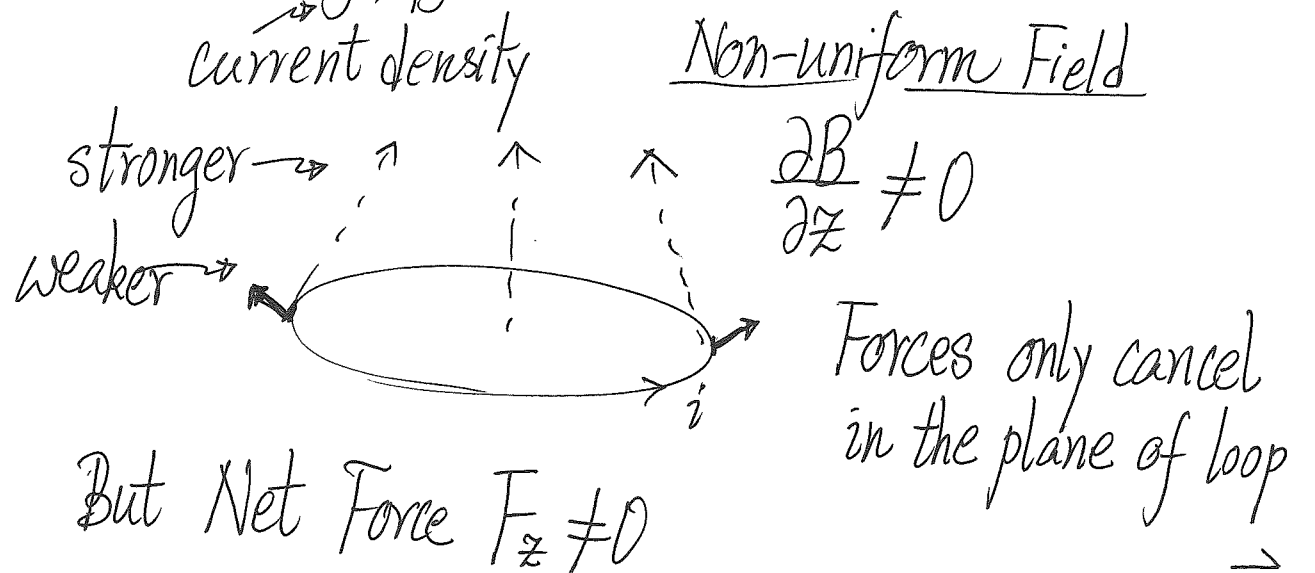 current density
Non-uniform Field
stronger →
∂B/∂z ≠ 0
weaker →
i
Forces only cancel
in the plane of loop
But Net Force F_z ≠ 0